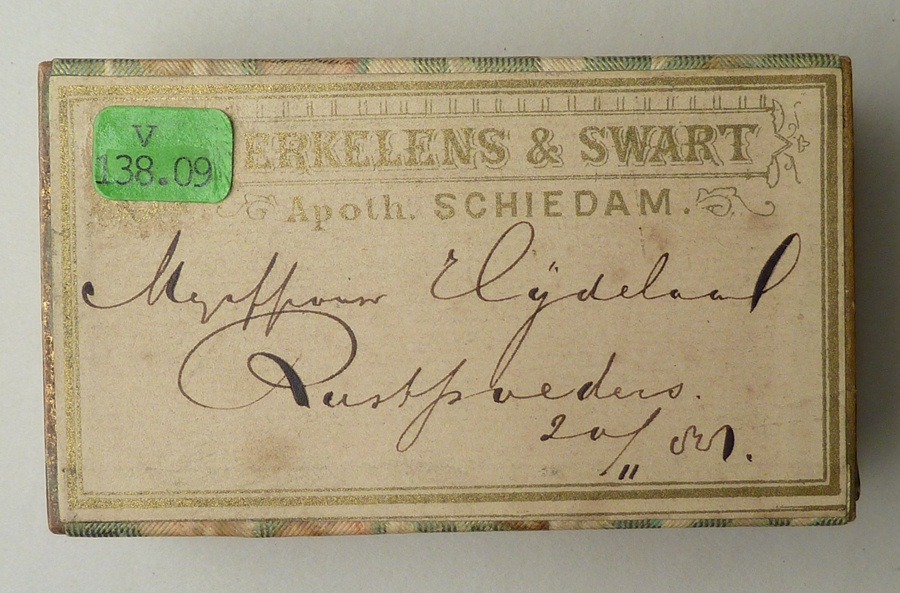 V
138.09
ERKELENS & SWART
Apoth. SCHIEDAM.
Mejuffrouw
Rustpoeders.
20/11